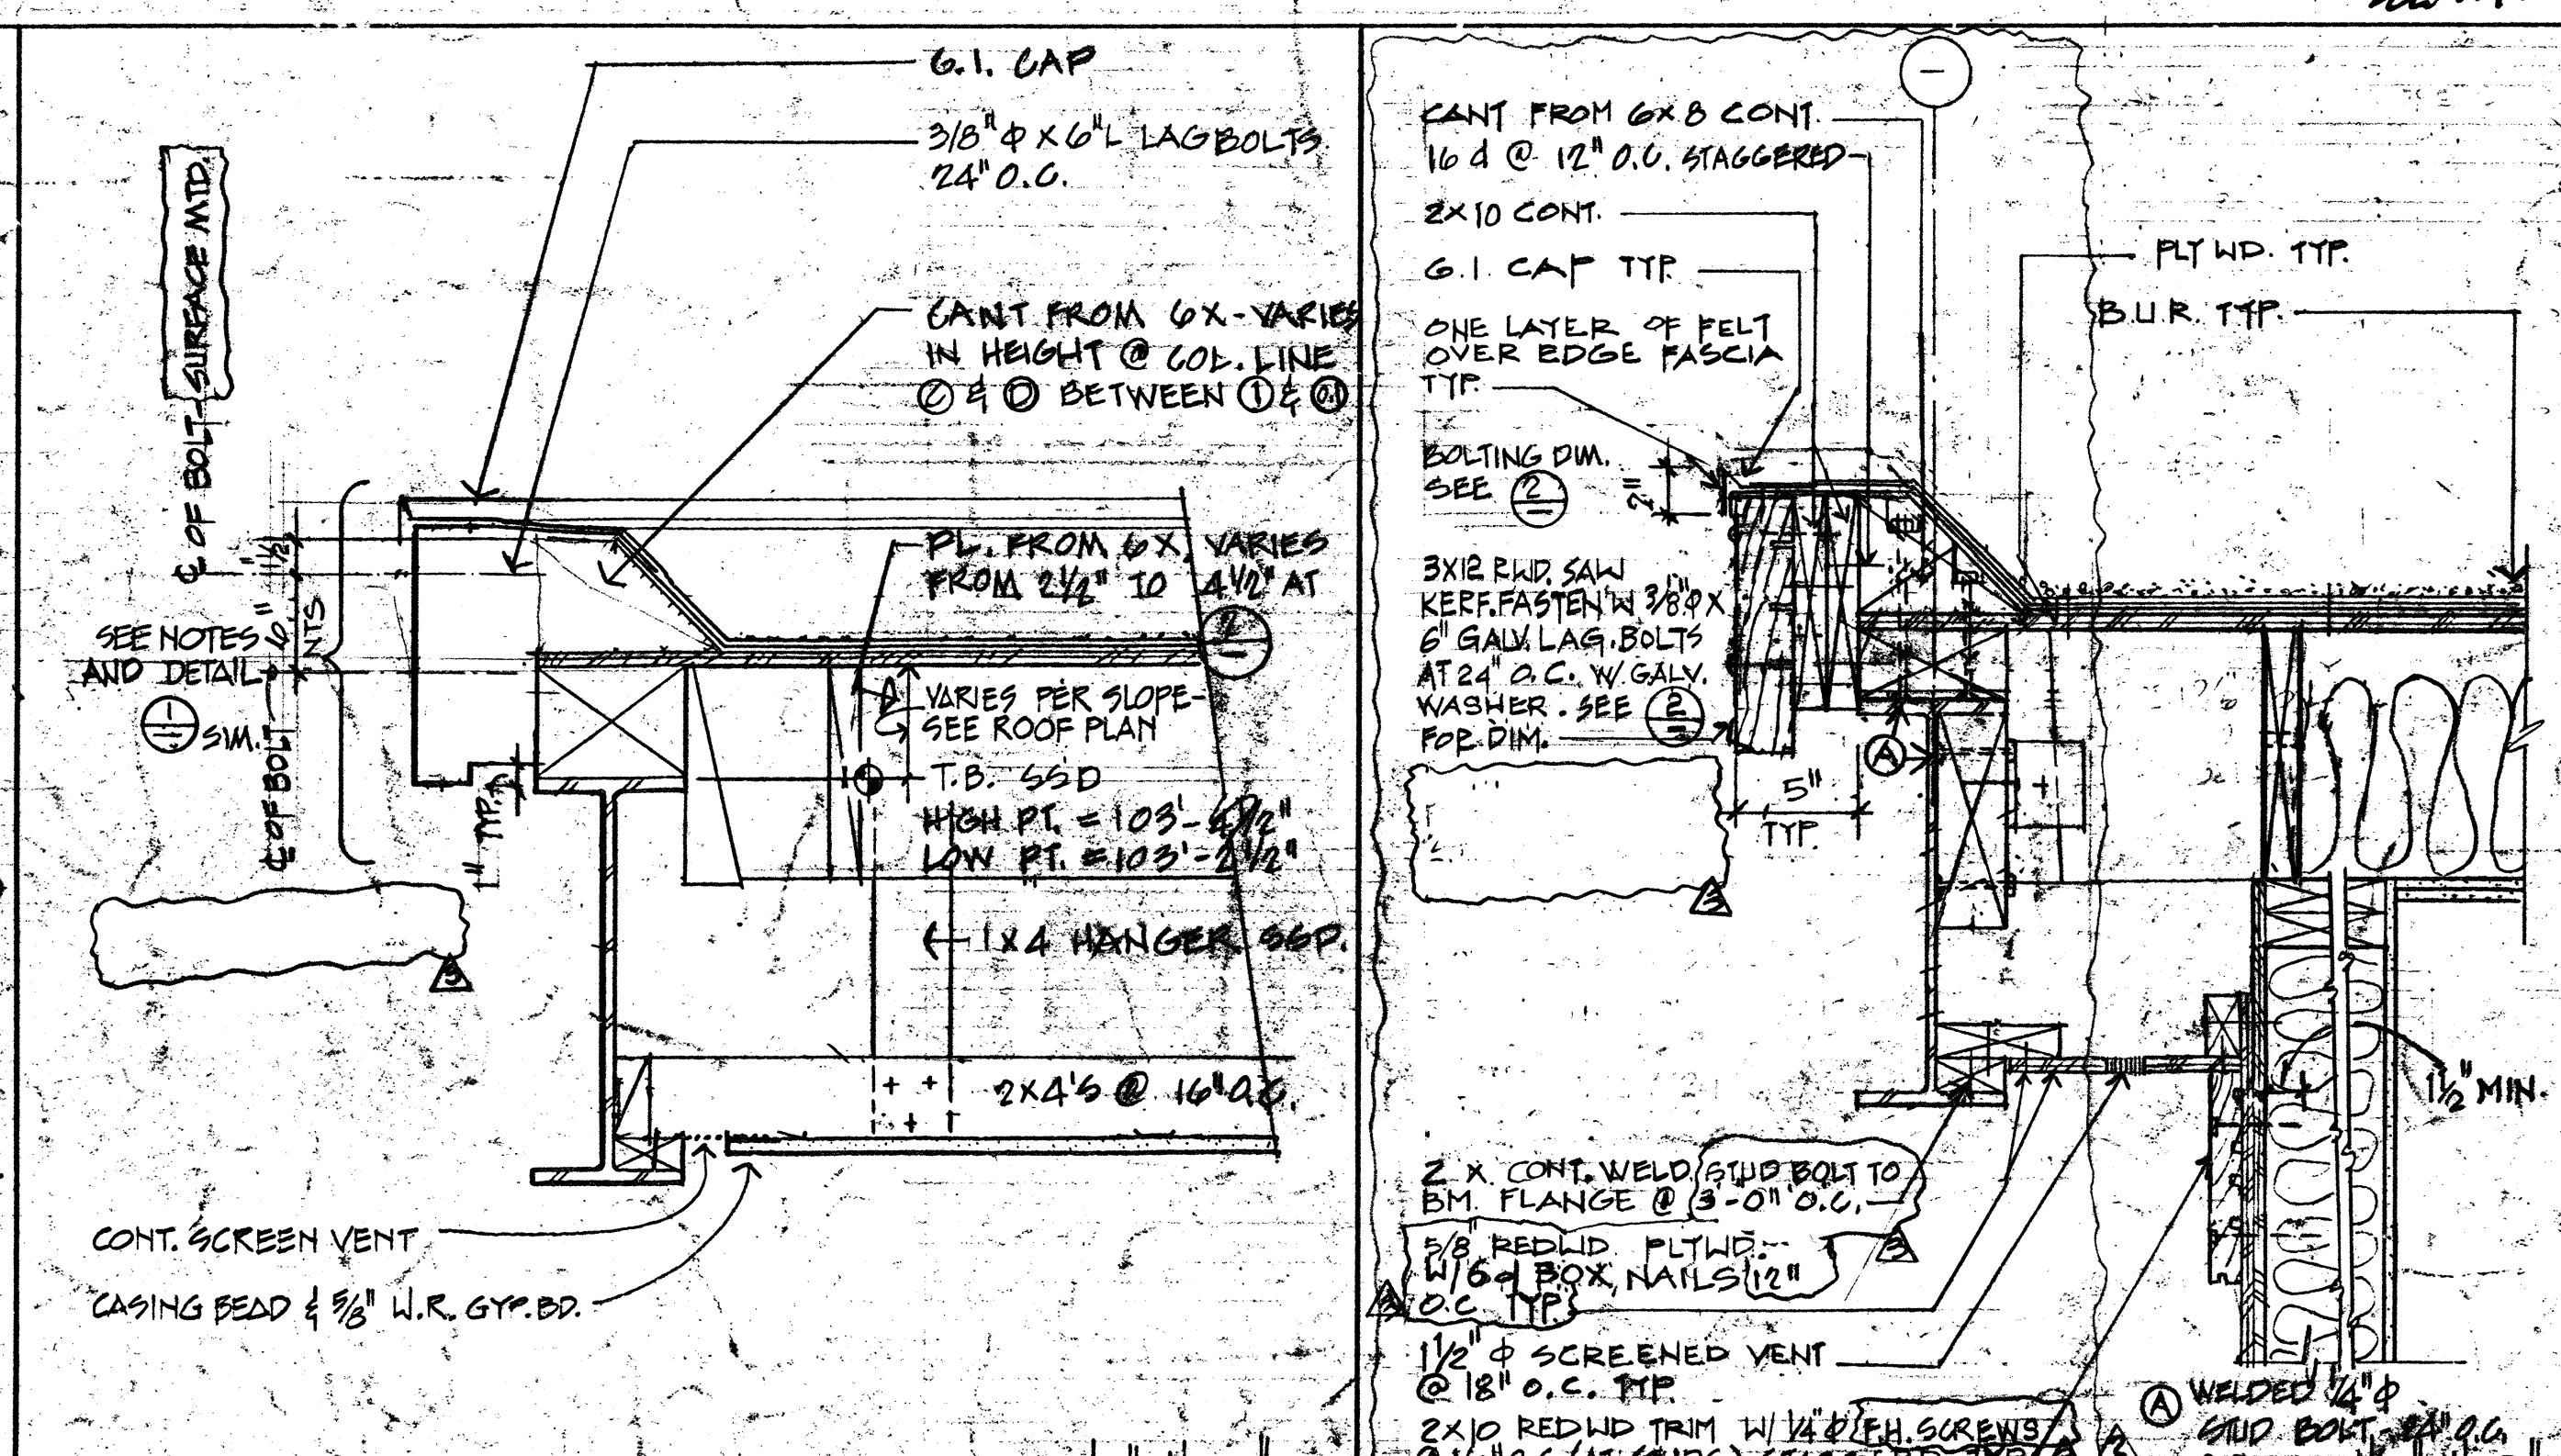 G.I. CAP
3/8"Φ X 6"L LAG BOLTS
24" O.C.
CANT FROM 6X - VARIES
IN HEIGHT @ COL. LINE
Ⓒ & Ⓓ BETWEEN ① &
℄ OF BOLT - SURFACE MTD.
1 1/2"
10"
NTS
SEE NOTES
AND DETAIL
1
SIM.
℄ OF BOLT
1" TYP.
PL. FROM 6X, VARIES
FROM 2 1/2" TO 4 1/2" AT
2
VARIES PER SLOPE-
SEE ROOF PLAN
T.B. SSD
HIGH PT. = 103'-
LOW PT. = 103'-2 1/2"
1X4 HANGER SSD.
2X4'S @ 16" O.C.
3
CONT. SCREEN VENT
CASING BEAD & 5/8" W.R. GYP. BD.
CANT FROM 6X8 CONT.
16 d @ 12" O.C. STAGGERED
2X10 CONT.
G.I. CAP TYP.
ONE LAYER OF FELT
OVER EDGE FASCIA
TYP.
BOLTING DIM.
SEE 2
2"
3X12 RWD. SAW
KERF. FASTEN W 3/8"Φ X
6" GALV. LAG. BOLTS
AT 24" O.C. W/ GALV.
WASHER. SEE 2
FOR DIM.
PLYWD. TYP.
B.U.R. TYP.
A
5"
TYP.
3
1 1/2" MIN.
2 X CONT. WELD STUD BOLT TO
BM. FLANGE @ 3'-0" O.C.
5/8" REDWD PLYWD.
W/ 6d BOX NAILS 12"
O.C. TYP.
3
3
1 1/2" Φ SCREENED VENT
@ 18" O.C. TYP.
2X10 REDWD TRIM W/ 1/4"Φ F.H. SCREWS
Ⓐ WELDED 1/4"Φ
STUD BOLT 24" O.C.